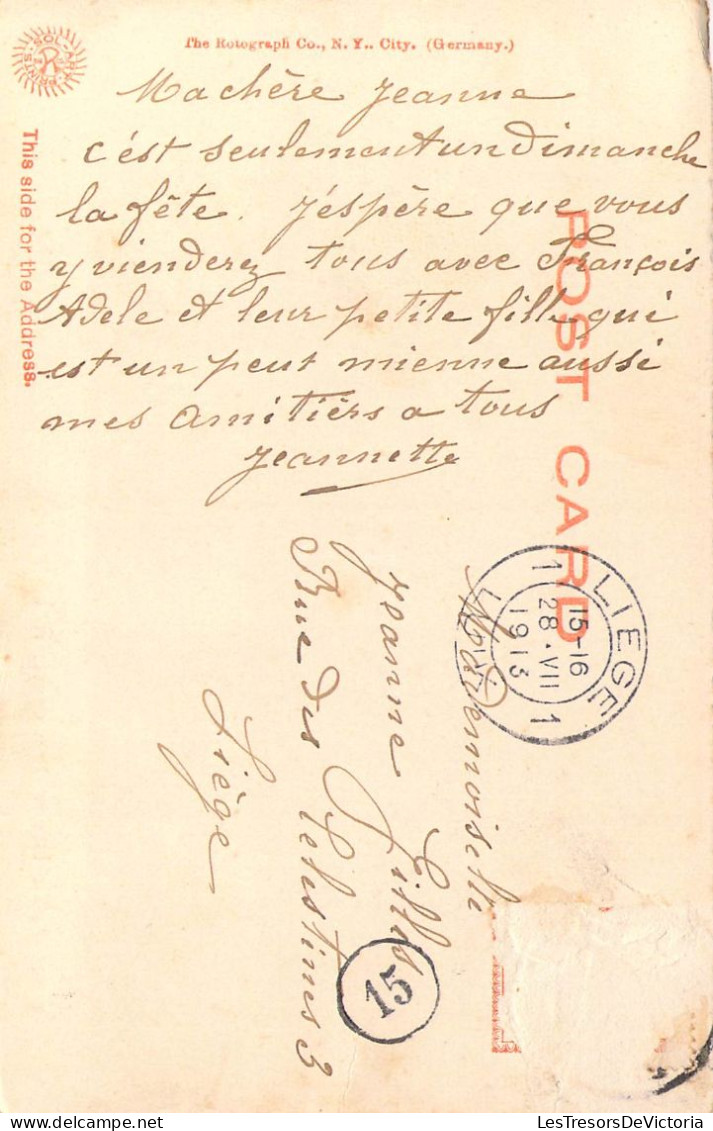 The Rotograph Co., N. Y.. City. (Germany.)
SOL-ART PRINTS
R
This side for the Address.
POST CARD
Ma chère Jeanne
c'ést seulement un dimanche
la fête. J'éspère que vous
y vienderez tous avec François
Adele et leur petite fille qui
est un peut mienne aussi
mes amitiérs a tous
Jeannette
Mademoiselle
Jeanne Gilles
Rue des Célestines 3
Liège
LIEGE
1 1
15-16
28·VII
1913
15
LesTresorsDeVictoria